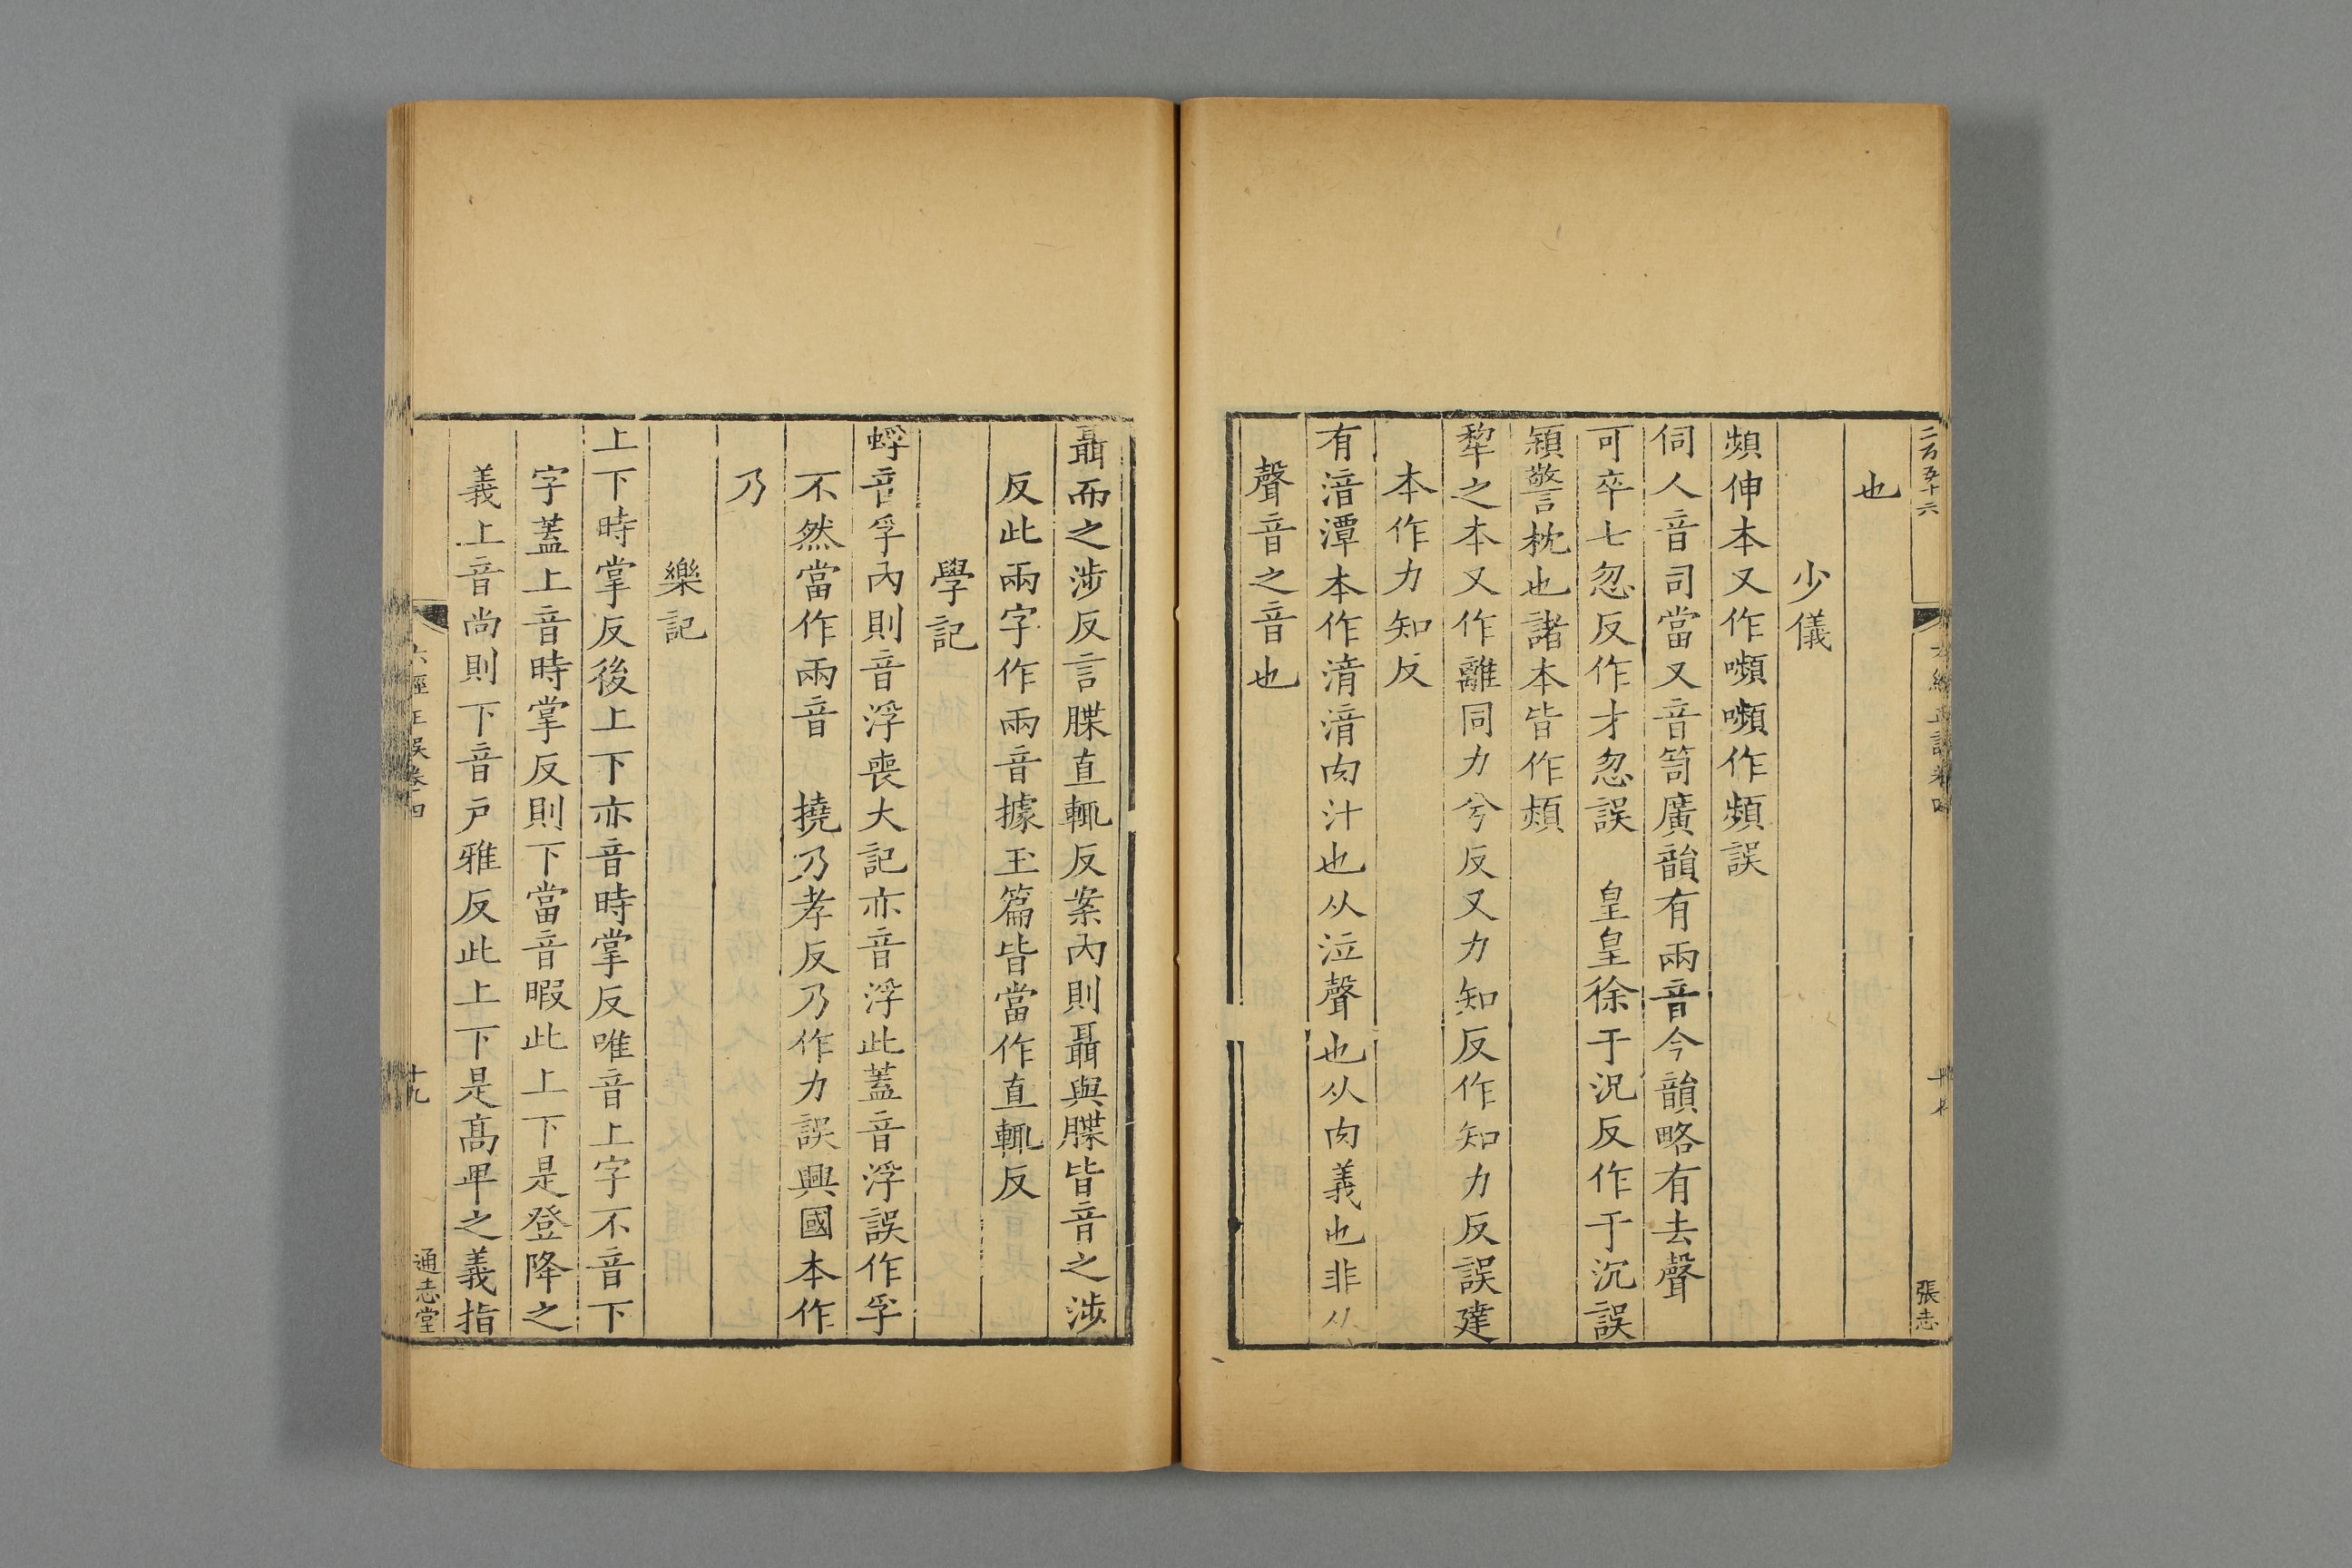 二百五十六
張志
也
少儀
頻伸本又作嚬嚬作頻誤
伺人音司當又音笥廣韻有兩音今韻略有去聲
可卒七忽反作才忽誤　皇皇徐于況反作于沉誤
熲警枕也諸本皆作潁
犂之本又作離同力兮反又力知反作知力反誤建
本作力知反
有湆潭本作湇湇肉汁也从泣聲也从肉義也非从
聲音之音也
聶而之涉反言牒直輒反案內則聶與牒皆音之涉
反此兩字作兩音據玉篇皆當作直輒反
學記
蜉音孚內則音浮喪大記亦音浮此蓋音浮誤作孚
不然當作兩音　撓乃孝反乃作力誤興國本作
乃
樂記
上下時掌反後上下亦音時掌反唯音上字不音下
字蓋上音時掌反則下當音暇此上下是登降之
義上音尚則下音戶雅反此上下是高卑之義指
六經正誤卷四
十九
通志堂